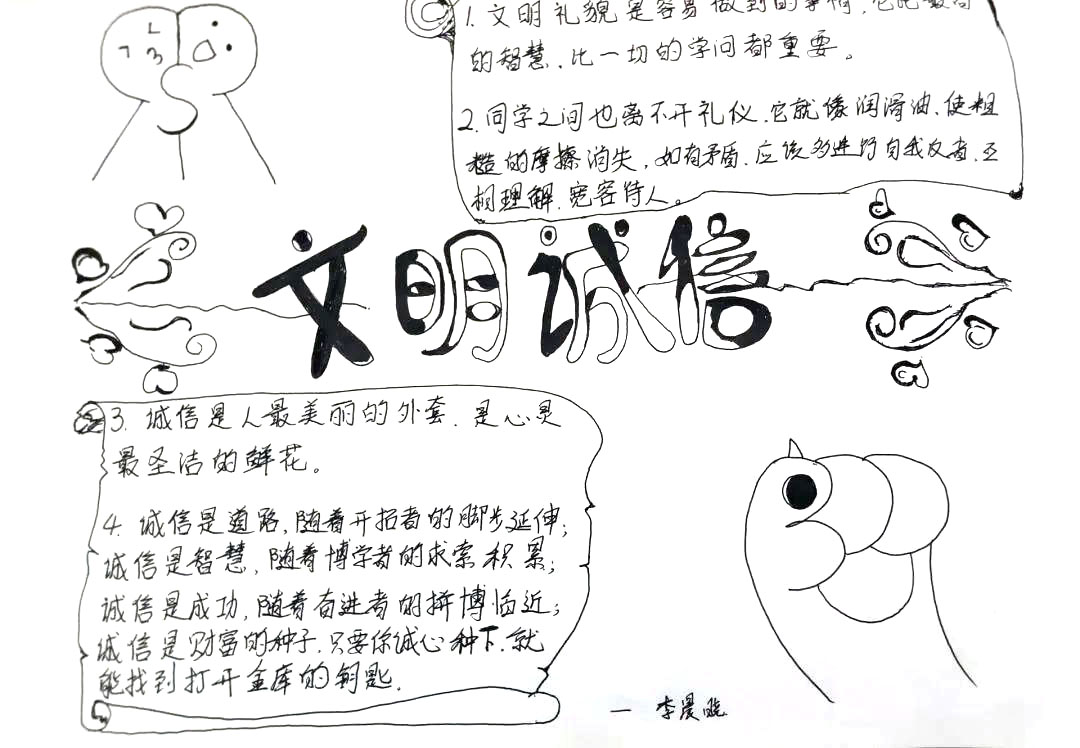 1. 文明礼貌是容易做到的事情，它比最高
的智慧，比一切的学问都重要。
2. 同学之间也离不开礼仪，它就像润滑油，使粗
糙的摩擦消失，如有矛盾，应该多进行自我反省，互
相理解，宽容待人。
文明诚信
3. 诚信是人最美丽的外套，是心灵
最圣洁的鲜花。
4. 诚信是道路，随着开拓者的脚步延伸；
诚信是智慧，随着博学者的求索积累；
诚信是成功，随着奋进者的拼搏临近；
诚信是财富的种子，只要你诚心种下，就
能找到打开金库的钥匙。
— 李晨